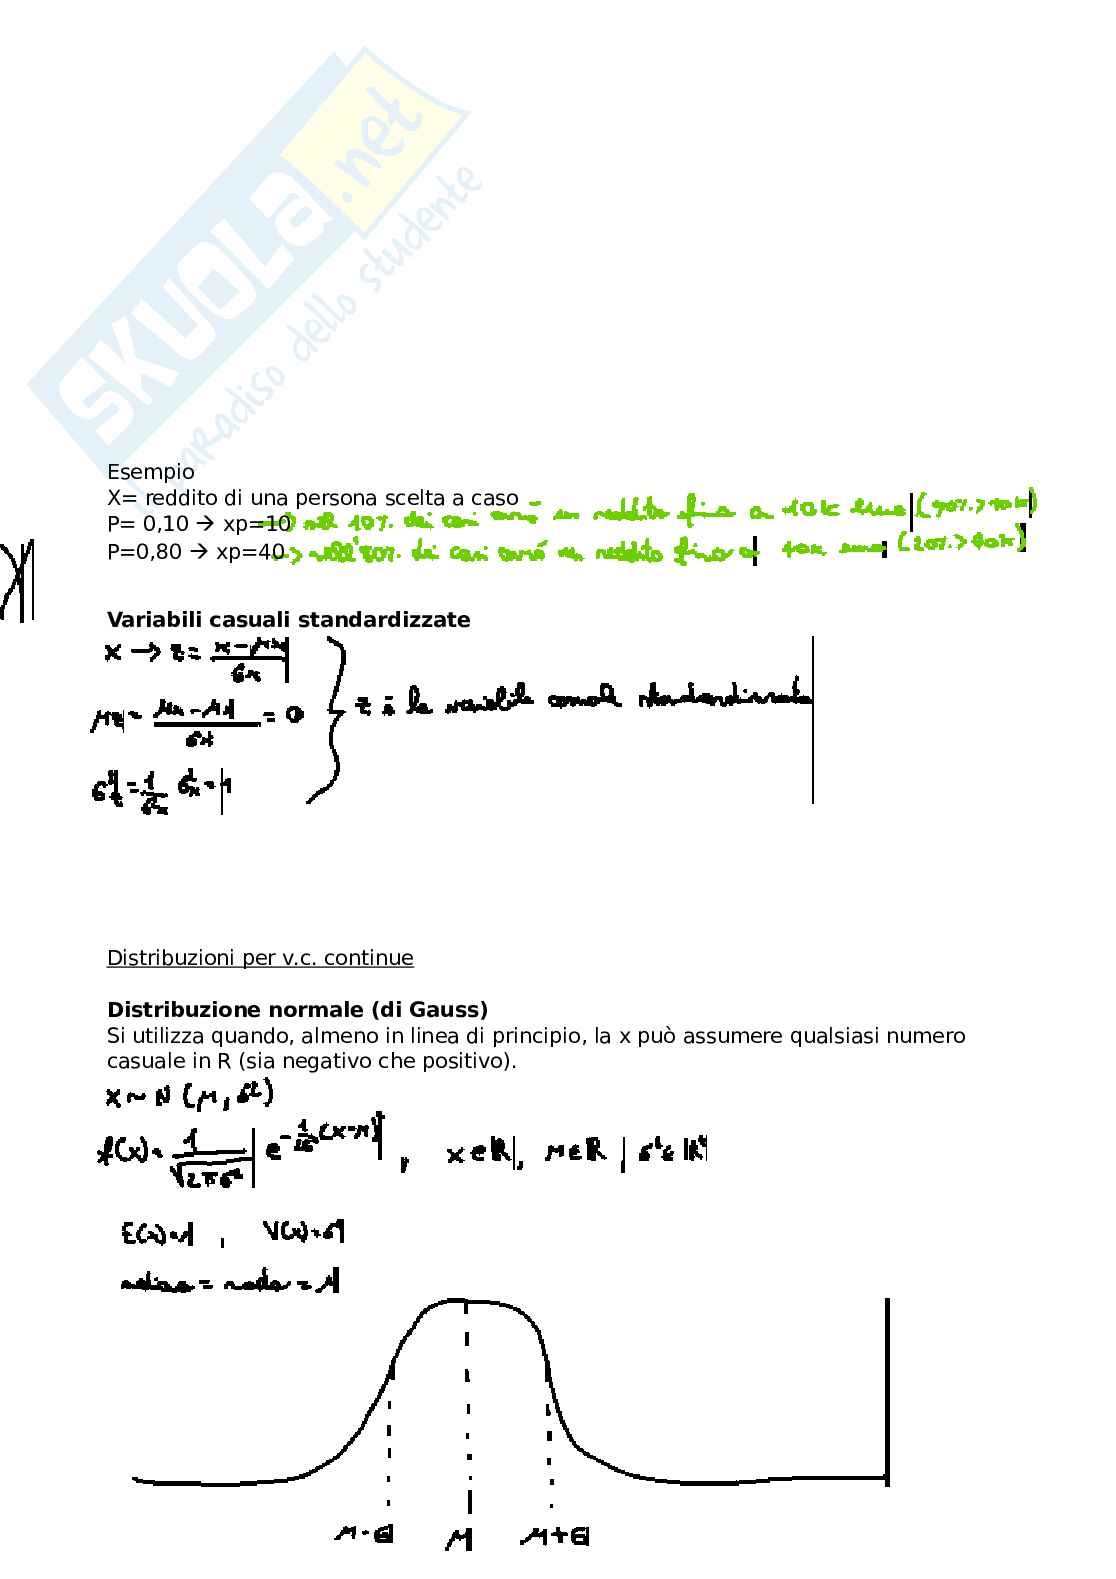 SKUOLA.net
paradiso dello studente
Esempio
X= reddito di una persona scelta a caso
P= 0,10 → xp=10 → nel 10% dei casi avrò un reddito fino a 10k euro (90% > 10k)
P=0,80 → xp=40 → nell'80% dei casi avrò un reddito fino a 40k euro (20% > 40k)
Variabili casuali standardizzate
x → z = (x - μx) / σx
μz = (μx - μx) / σx = 0
z è la variabile casuale standardizzata
σ²z = 1/σ²x σ²x = 1
Distribuzioni per v.c. continue
Distribuzione normale (di Gauss)
Si utilizza quando, almeno in linea di principio, la x può assumere qualsiasi numero
casuale in R (sia negativo che positivo).
x ~ N (μ, σ²)
f(x) = 1/√(2πσ²) e^(-1/2σ² (x-μ)²), x ∈ R, μ ∈ R, σ² ∈ R⁺
E(x) = μ, V(x) = σ²
mediana = moda = μ
μ-σ μ μ+σ